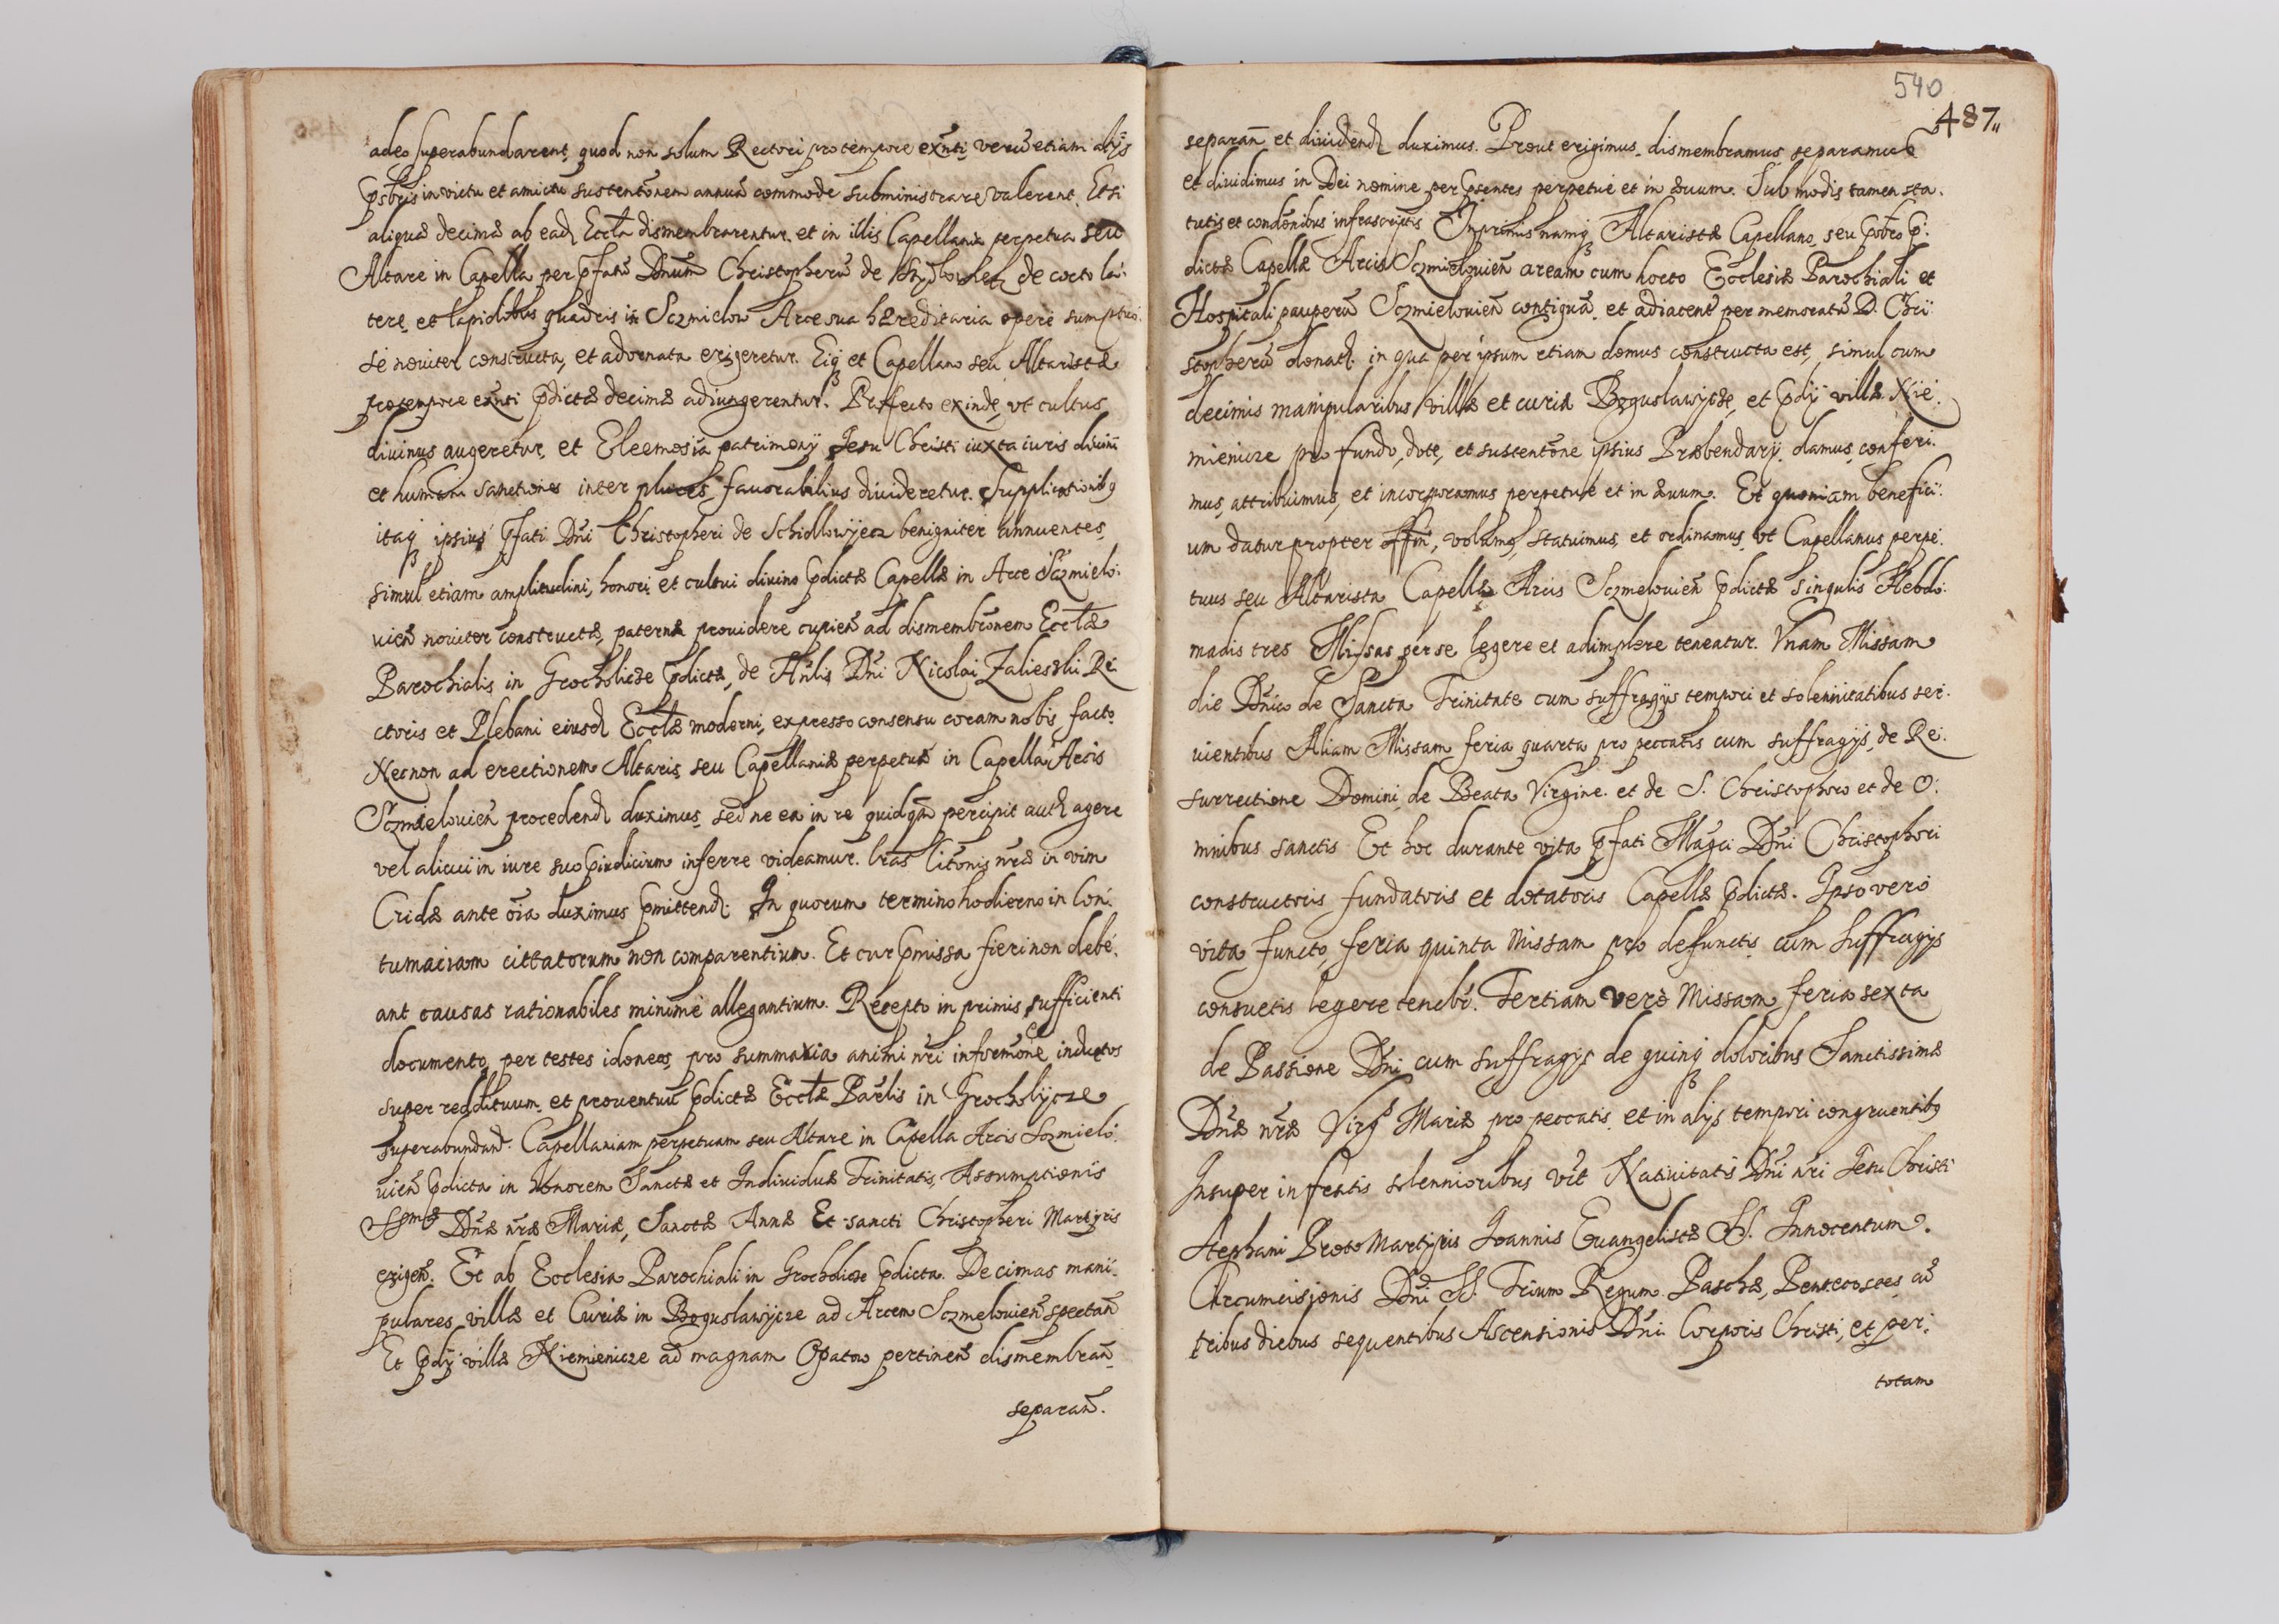 adeo superabundarent, quod non solum Rectori pro tempore exñti, verũ etiam alijs
p̃sbris in victu et amictu sustentõnem annuã commode subministrare valerent. Et si
aliquæ decimæ ab ead. Eccła dismembrarentur, et in illis Capellania perpetua seu
Altare in Capella per p̃fatũ Dñum Christopherũ de de cocto la:
tere, et lapidibus quadris in Sczmielow Arce sua hæreditaria opere sumptuo:
se noviter constructa, et adornata erigeretur. Eiq3 et Capellano seu Altaristæ
pro tempore exñti p̃dictæ decimæ adiungerentur. Profecto exinde, vt cultus
divinus augeretur, et Eleemosia patrimonij Jesu Christi iuxta iuris divini
et humani sanctiones inter plures favorabilius divideretur. Supplicationibq
itaq3 ipsius p̃fati Dñi Christopheri de Schidlowijecz benigniter annuentes,
simul etiam amplitudini, honori et cultui divino p̃dictæ Capellæ in Arce Sczmielo:
vieñ noviter constructæ, paternæ providere cupieñ ad dismembrõnem Eccłæ
Parochialis in Grocholicze p̃dictæ, de Hñlis Dñi Nicolai Zalieski Re:
ctoris et Plebani eiusd. Eccłæ moderni, expresso consensu coram nobis facto.
Necnon ad erectionem Altaris seu Capellaniæ perpetuæ in Capella Arcis
Sczmielovieñ procedend. duximus, sed ne ea in re quidq̃ percipit aut agere
vel alicui in iure suo p̃iudicium inferre videamur. lr̃as citõnis nr̃as in vim
Cridæ ante õia duximus p̃mittend. In quorum termino hodierno in Con:
tumaciam cittatorum non comparentium. Et cur p̃missa fieri non debe:
ant causas rationabiles minime allegantium. Recepto in primis sufficienti
documento, per testes idoneos, pro summaria animi nr̃i informõne inductos
super reddituum, et proventuũ p̃dictæ Eccłæ Par̃lis in Grocholijcze
superabundañ. Capellaniam perpetuam seu Altare in Capella Arcis Sczmielo:
vieñ p̃dicta in honorem Sanctæ et Individuæ Trinitatis, Assumptionijs
SSmæ Dñæ nr̃æ Mariæ, Sanctæ Annæ Et sancti Christopheri Martyris
erigeñ. Et ab Ecclesia Parochiali in Grocholicze p̃dicta. Decimas mani:
pulares villæ et Curiæ in Boguslawijcze ad Arcem Sczmelovieñ spectañ
Et p̃dij villæ Niemienicze ad magnam Opatow pertineñ dismembrañ
separañ.
540
487"
separañ et dividend. duximus. Prout erigimus, dismembramus, separamus
et dividimus in Dei nomine per p̃sentes perpetuè et in ævum. Sub modis tamen sta:
tutis et condõnibus infrascriptis Inprimis namq3 Altaristæ Capellano, seu p̃sbro p̃:
dictæ Capellæ Arcis Sczmielovieñ aream cum horto Ecclesiæ Parochiali et
Hospitali pauperũ Sczmielovieñ contiguã, et adiacent per memoratũ D. Chri:
stopherũ donat. in qua per ipsum etiam domus constructa est, simul cum
decimis manipularibus villæ et curiæ Boguslawijcze, et p̃dij villæ Nie:
mienicze pro fundo, dote, et sustentõne ipsius Præbendarij, damus, conferi:
mus, attribuimus, et incorporamus perpetuè et in ævum. Et quoniam benefici:
um datur propter offm, volumq, statuimus, et ordinamus, vt Capellanus perpe:
tuus seu Altarista Capellæ Arcis Sczmelovieñ p̃dictæ singulis Hebdo:
madis tres Missas per se legere et adimplere teneatur. Vnam Missam
die Dñico de Sancta Trinitate cum suffragijs tempori et solennitatibus ser:
vientibus Aliam Missam feria quarta pro peccatis cum suffragijs, de Re:
surrectione Domini, de Beata Virgine, et de S. Christophoro et de O:
mnibus sanctis Et hoc durante vita p̃fati Magci Dñi Christophori
constructoris, fundatoris et dotatoris Capellæ p̃dictæ. Ipso verò
vita functo, feria quinta Missam pro defunctis, cum Suffragijs
consuetis legere tenebr̃. Tertiam verò Missam, feria sexta
de Passione Dñi cum suffragijs de quinq3 doloribus Sanctissimæ
Dñæ nr̃æ Virgs Mariæ pro peccatis, et in alijs tempori congruentibq
Insuper in festis solennioribus vĩt Nativitatis Dñi nr̃i Jesu Christi
Stephani Proto Martijris Joannis Evangelistæ SS. Innocentum.
Circumcisionis Dñi SS. Trium Regum. Paschæ, Pentecostes, cũ
tribus diebus sequentibus Ascensionis Dñi Corporis Christi, et per:
totam